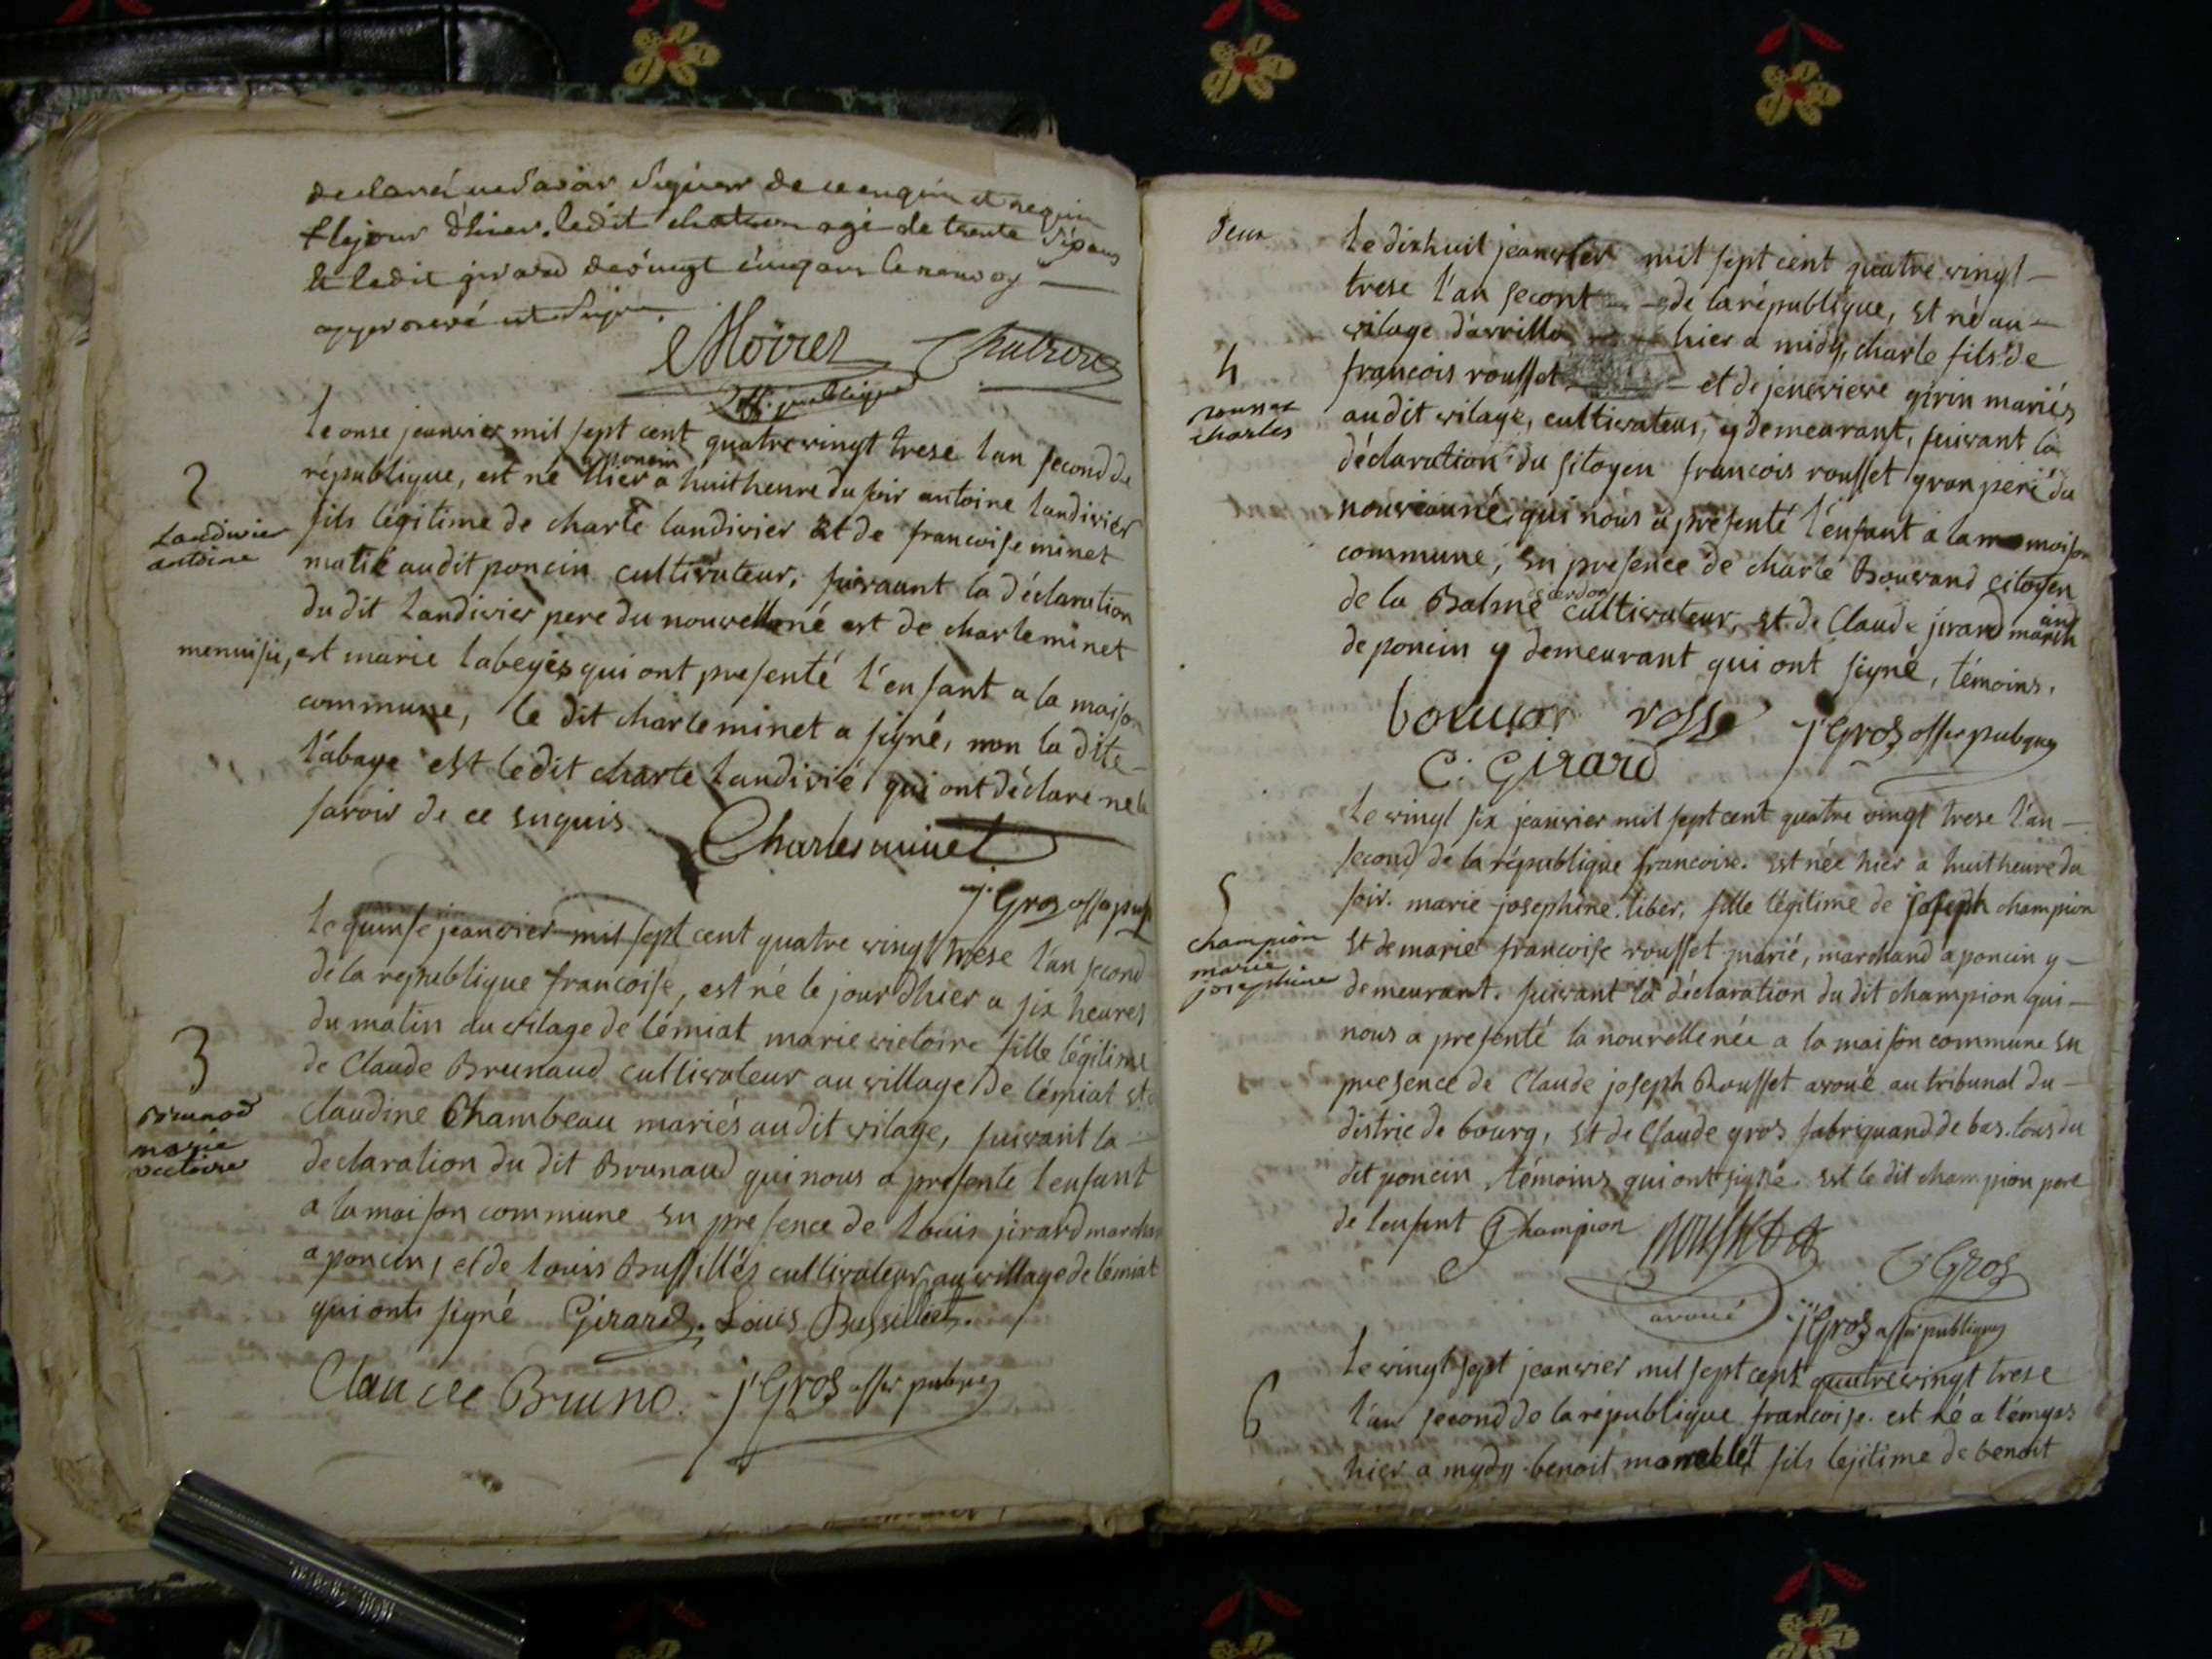 declaré ne Savoir Signer de ce enquis et requis
f le jour d'hier. ledit chatron agé de trente six ans
et ledit girard de vingt cinq ans le renvoy
approuvé et Signé.
Chatron
Off. publique
le onse jeanvier mil sept cent quatre vingt trese lan second de
république, est né a poncin hier a huit heure du soir antoine landivier
fils légitime de charle landivier et de francoise minet
marié audit poncin cultivateur, suivaunt la déclaration
du dit Landivier pere du nouvellené est de charle minet
menuisié, est marie labeyé qui ont presenté l'enfant a la maison
commune, le dit charle minet a signé, non la dite
l'abaye est le dit charle Landivié qui ont déclare ne le
savoir de ce enquis
Charles minet
j. Gros off publ
2
Landivier
antoine
le quinse jeanvier mil sept cent quatre vingt trese l'an second
de la republique francoise, est né le jour d'hier a six heures
du matin au vilage de lémiat marie victoire fille légitime
de Claude Brunaud cultivateur au village de lémiat et
Claudine Chambeau mariés audit vilage, suivant la
declaration du dit Brunaud qui nous a presente l'enfant
a la maison commune en presence de Louis jirard marchan
a poncin, et de Louis Bussilliés cultivateur au village de lémiat
qui onts signé Girard. Louis Bussilliet.
Claude Bruno. j. Gros offier publique
3
Brunod
marie
victoire
deux
le dixhuit jeanvier mil sept cent quatre vingt
trese l'an second de la république, est né au
vilage d'avrillia hier a midy, charle fils de
francois rousset et de jenevieve girin mariés
audit vilage, cultivateur, y demeurant, suivant la
déclaration du sitoyen francois rousset gran pere du
nouveauné, qui nous a presenté l'enfant a la maison
commune, en presence de charle Bouvand citoyen
de la Balme cerdon cultivateur, et de Claude jirard marchand
de poncin y demeurant qui ont signé, témoins.
bouvan rosse j. Gros offier publique
C. Girard
4
rousset
charles
le vingt six jeanvier mil sept cent quatre vingt trese l'an
second de la république francoise. est née hier a huit heure du
soir. marie josephine liber, fille légitime de joseph champion
et de marie francoise rousset marié, marchand a poncin y
demeurant. suivant la déclaration du dit champion qui
nous a presenté la nouvellenée a la maison commune en
presence de Claude joseph Rousset avoué au tribunal du
distric de bourg, et de Claude gros fabriquand de bas. tous du
dit poncin, témoins qui ont signé. est le dit champion pere
de l'enfent Champion Rousset
C. Gros
avoué j. Gros offier publique
5
champion
marie
josephine
le vingt sept jeanvier mil sept cent quatre vingt trese
l'an second de la république francoise. est né a lémyas
hier a mydy benoit fils lejitime de benoit
6